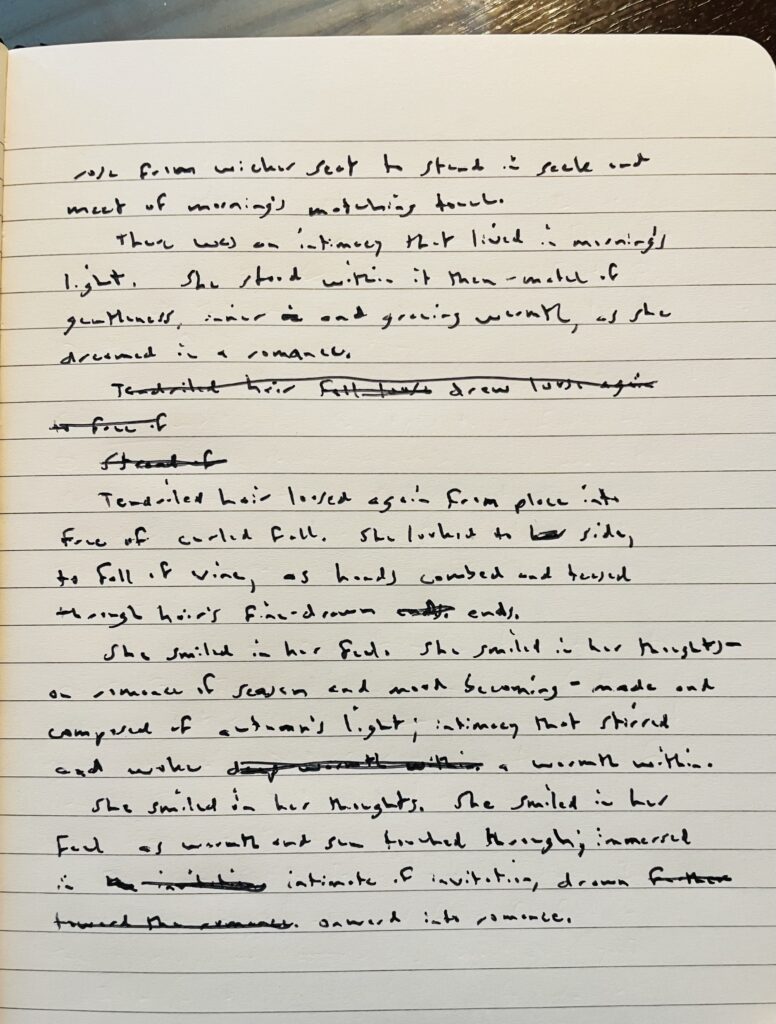 rose from wicker seat to stand in seek and
meet of morning's matching touch.
There was an intimacy that lived in morning's
light. She stood within it then - match of
gentleness, inner and growing warmth, as she
dreamed in a romance.
Tendriled hair fall loose drew loose again
to free of
Strand of
Tendriled hair loosed again from place into
free of curled fall. She looked to her side,
to fall of vine, as hands combed and teased
through hair's fine-drawn ends. ends.
She smiled in her feel. She smiled in her thoughts -
on romance of season and mood becoming - made and
composed of autumn's light; intimacy that stirred
and woke deep warmth within. a warmth within.
She smiled in her thoughts. She smiled in her
feel as warmth and sun touched through; immersed
in the invitation intimate of invitation, drawn further
toward the romance. onward into romance.